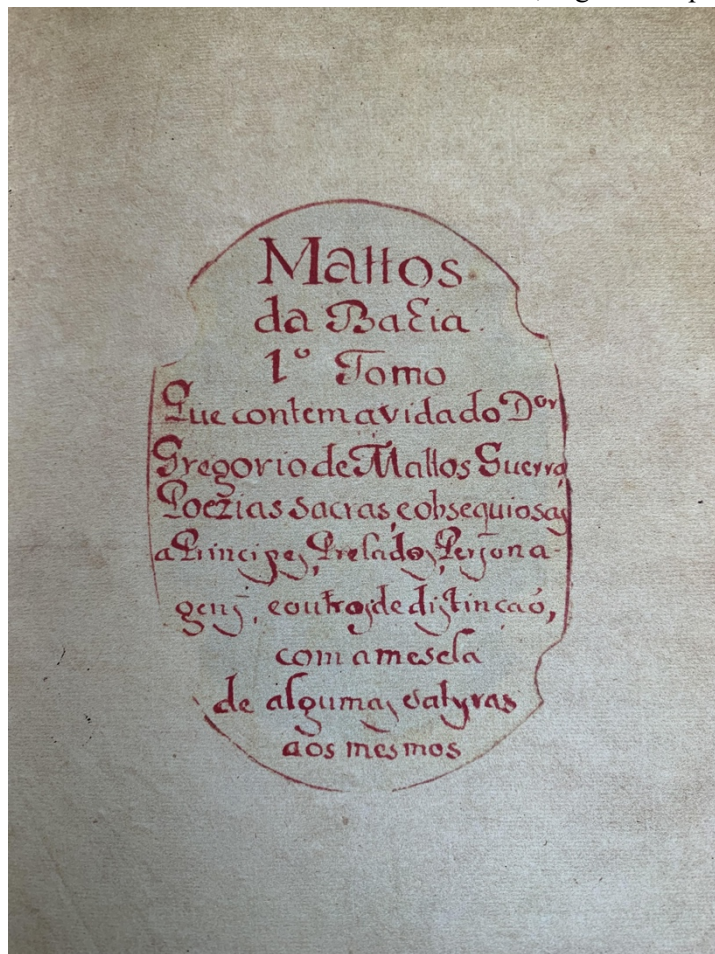 Mattos
da Bahia.
1º Tomo
Que contem a vida do Dor
Gregorio de Mattos Guerra,
Poezias sacras, e obsequiosas
a Principes, Prelados, Persona-
gens, e outros de distinçaõ,
com a mescla
de algumas satyras
aos mesmos